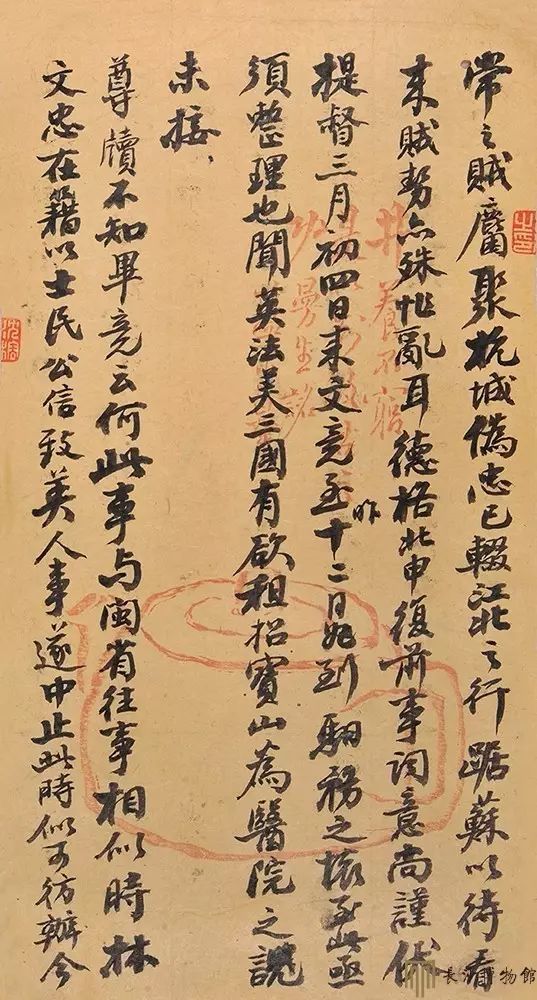 常之賊麕聚杭城偽忠已輟江北之行踞蘇以待看
來賊勢亦殊忙亂耳德格此申復前事詞意尚謹伏
提督三月初四日來文竟至昨十二日始到駟務之壞至此亟
須整理也聞英法美三國有欲租招寶山為醫院之說
未接
尊牘不知畢竟云何此事与閩省往事相似時林
文忠在籍以士民公信致英人事遂中止此時似可仿辦今
長沙博物館